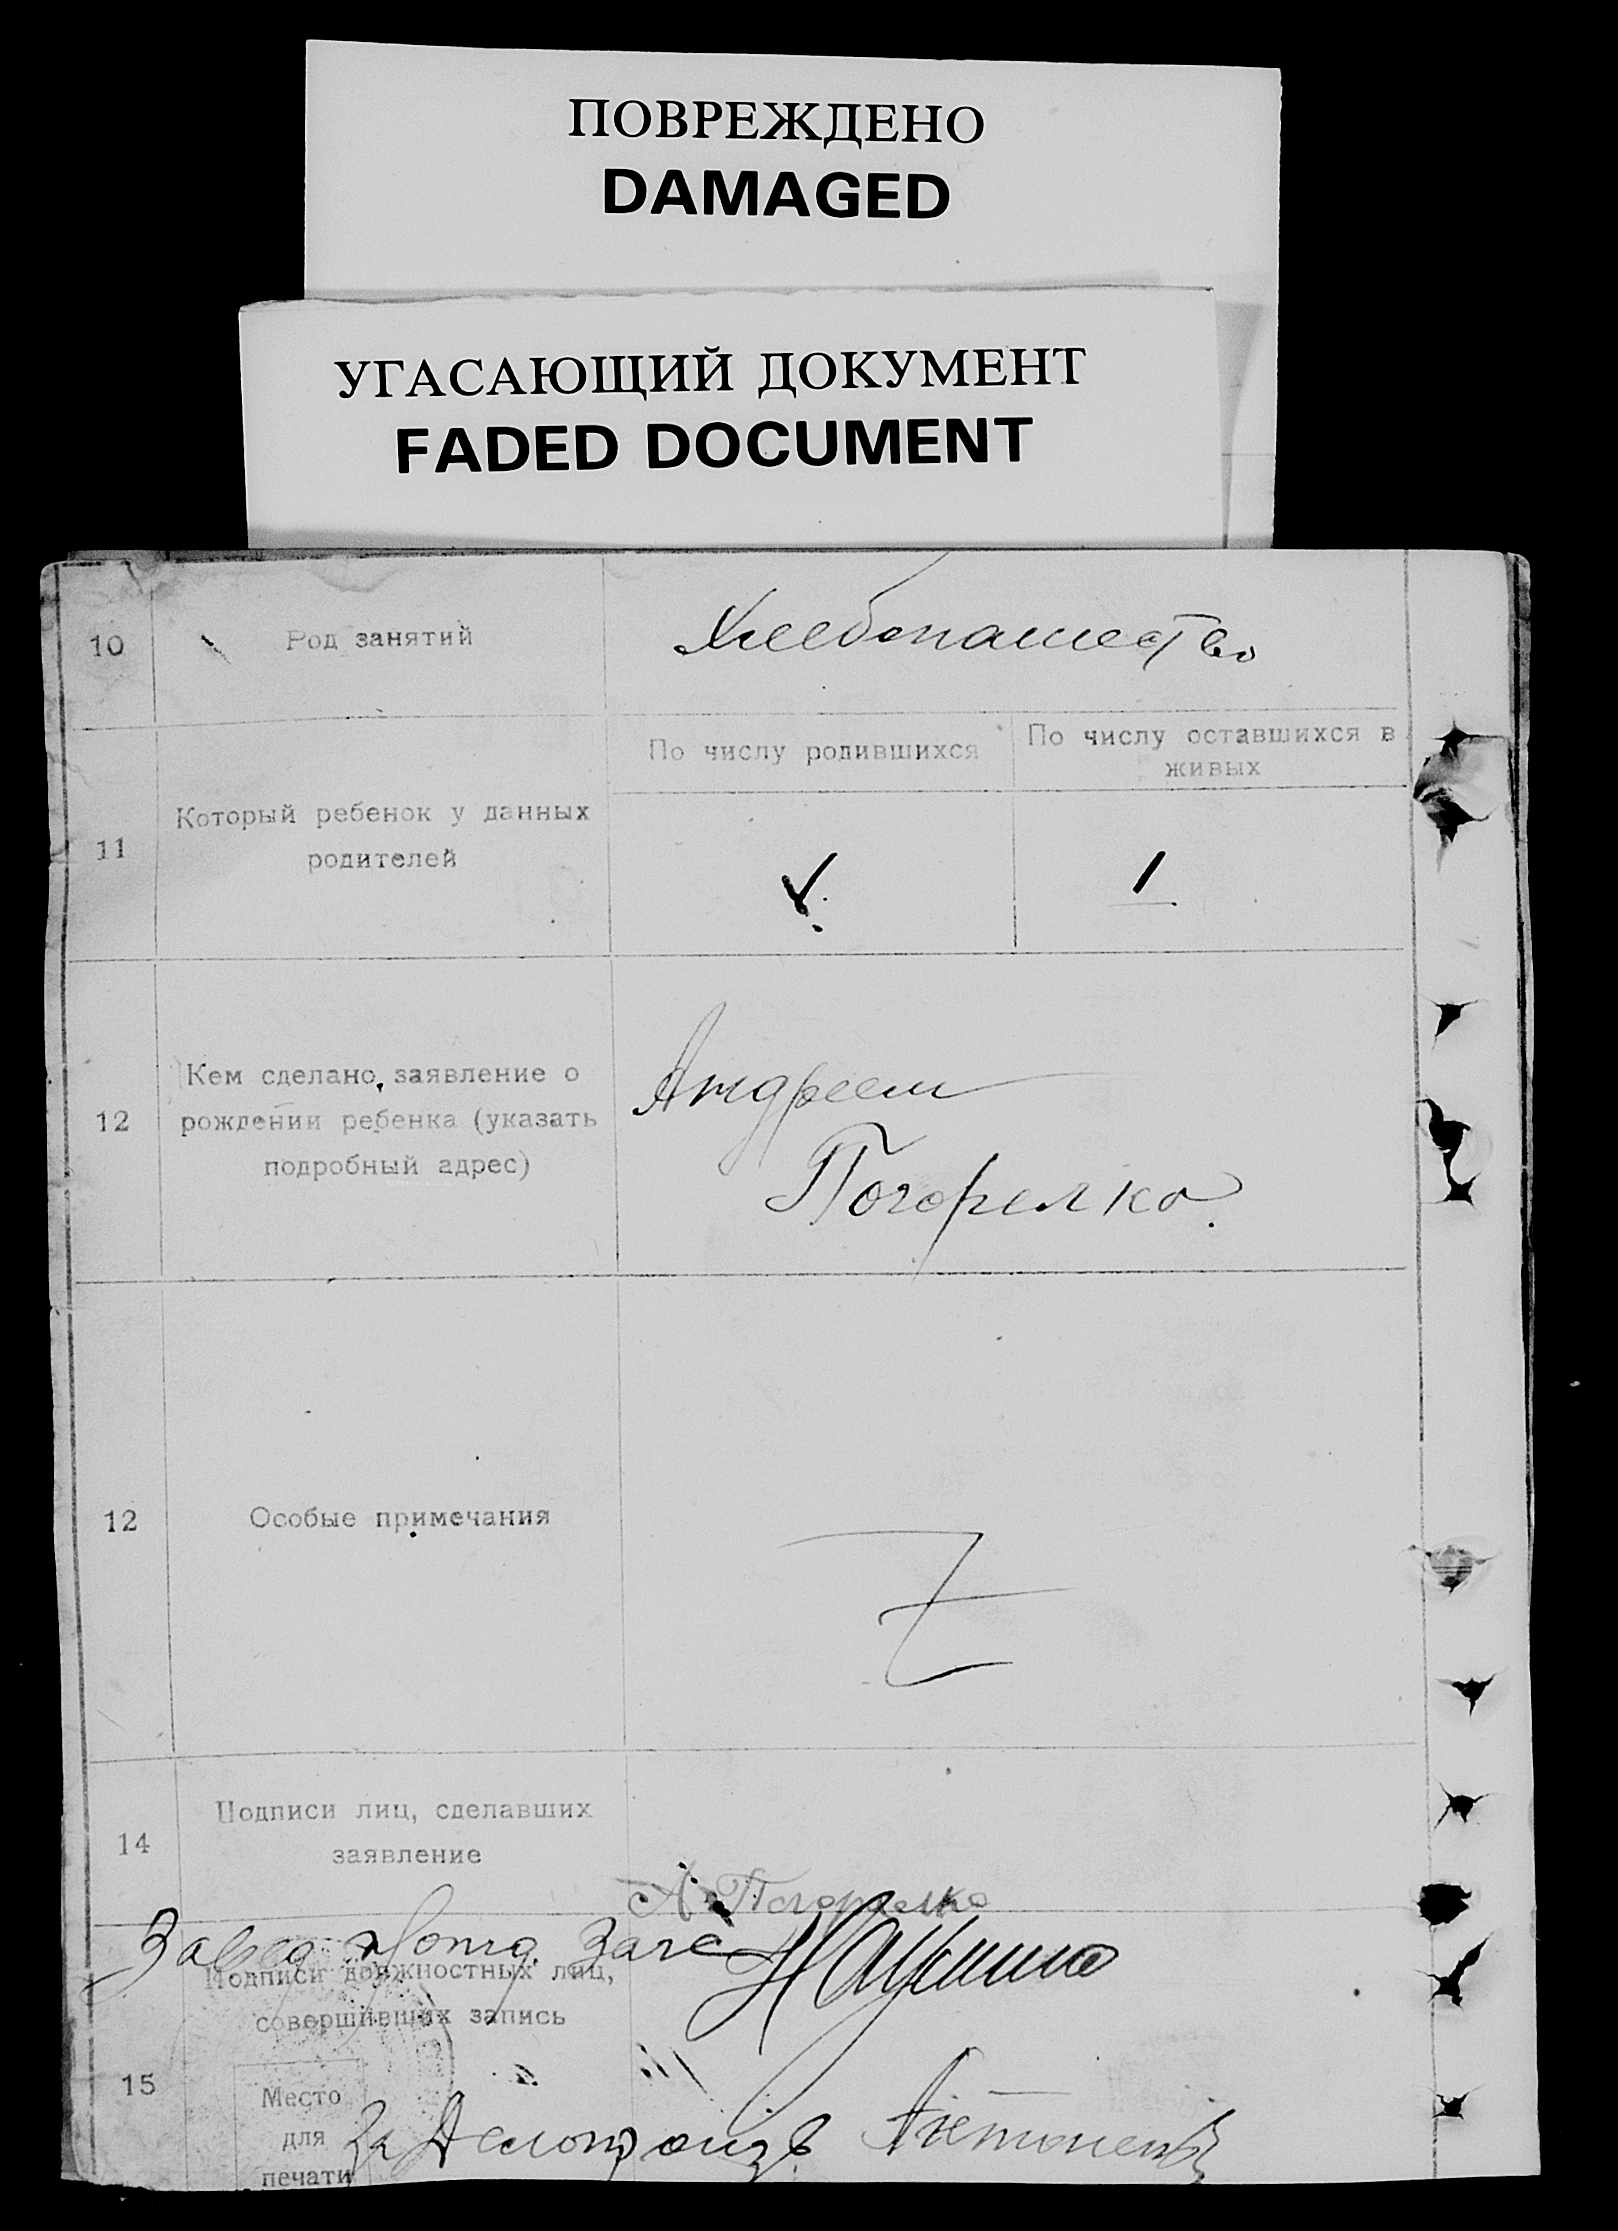 ПОВРЕЖДЕНО
DAMAGED
УГАСАЮЩИЙ ДОКУМЕНТ
FADED DOCUMENT
10
Род занятий
Хлебопашество
11
Который ребенок у данных
родителей
По числу родившихся
По числу оставшихся в
живых
1
12
Кем сделано заявление о
рождении ребенка (указать
подробный адрес)
Андреем
Погорелко.
12
Особые примечания
14
Подписи лиц, сделавших
заявление
А Погорелко
Завед
Подписи должностных лиц,
совершивших запись
15
Место
для
печати
За Делопроизв